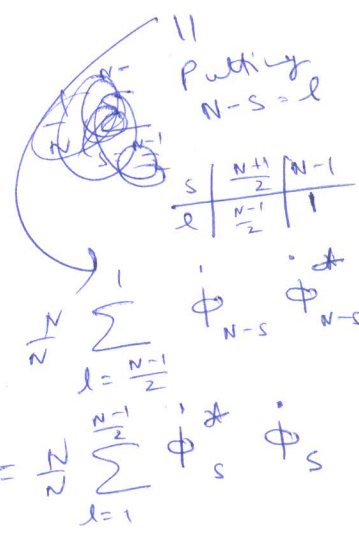 ||
Putting
N-S = l
S | N+1/2 | N-1
l | N-1/2 | 1
N/N ∑_{l = N-1/2}^{1} φ̇_{N-S} φ̇*_{N-S}
= N/N ∑_{l=1}^{N-1/2} φ̇*_S φ̇_S